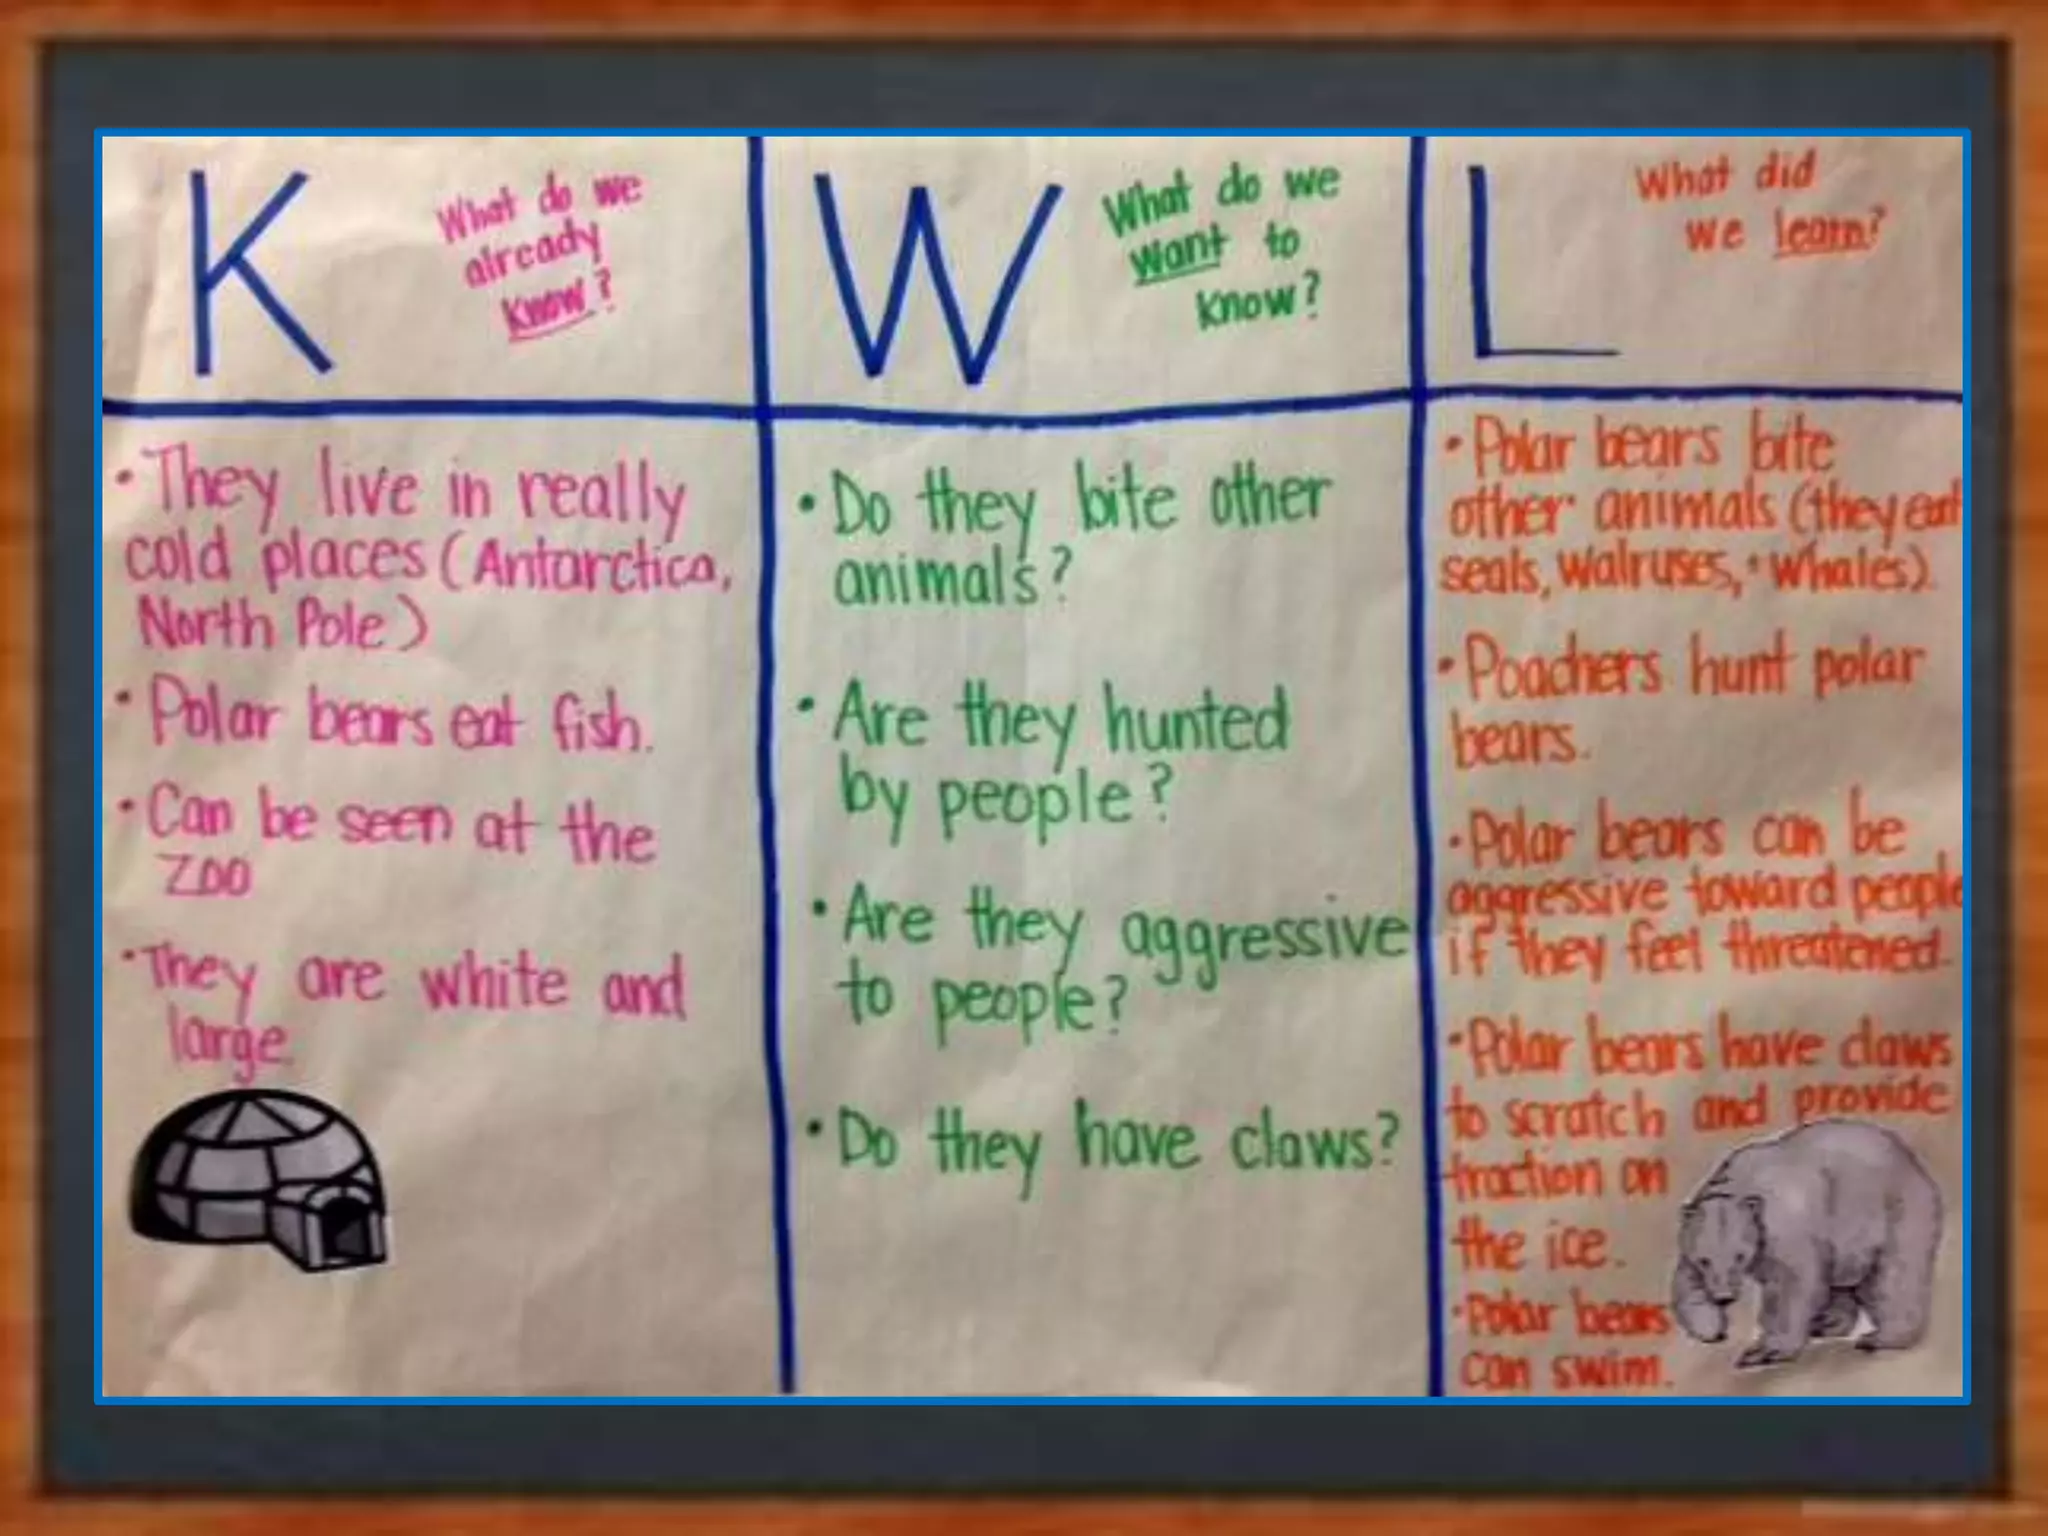 K
What do we
already
know?
• They live in really
cold places (Antarctica,
North Pole)
• Polar bears eat fish.
• Can be seen at the
zoo
• They are white and
large
W
What do we
want to
know?
• Do they bite other
animals?
• Are they hunted
by people?
• Are they aggressive
to people?
• Do they have claws?
L
What did
we learn?
• Polar bears bite
other animals (they eat
seals, walruses, + whales).
• Poachers hunt polar
bears.
• Polar bears can be
aggressive toward people
if they feel threatened.
• Polar bears have claws
to scratch and provide
traction on
the ice.
• Polar bears
can swim.